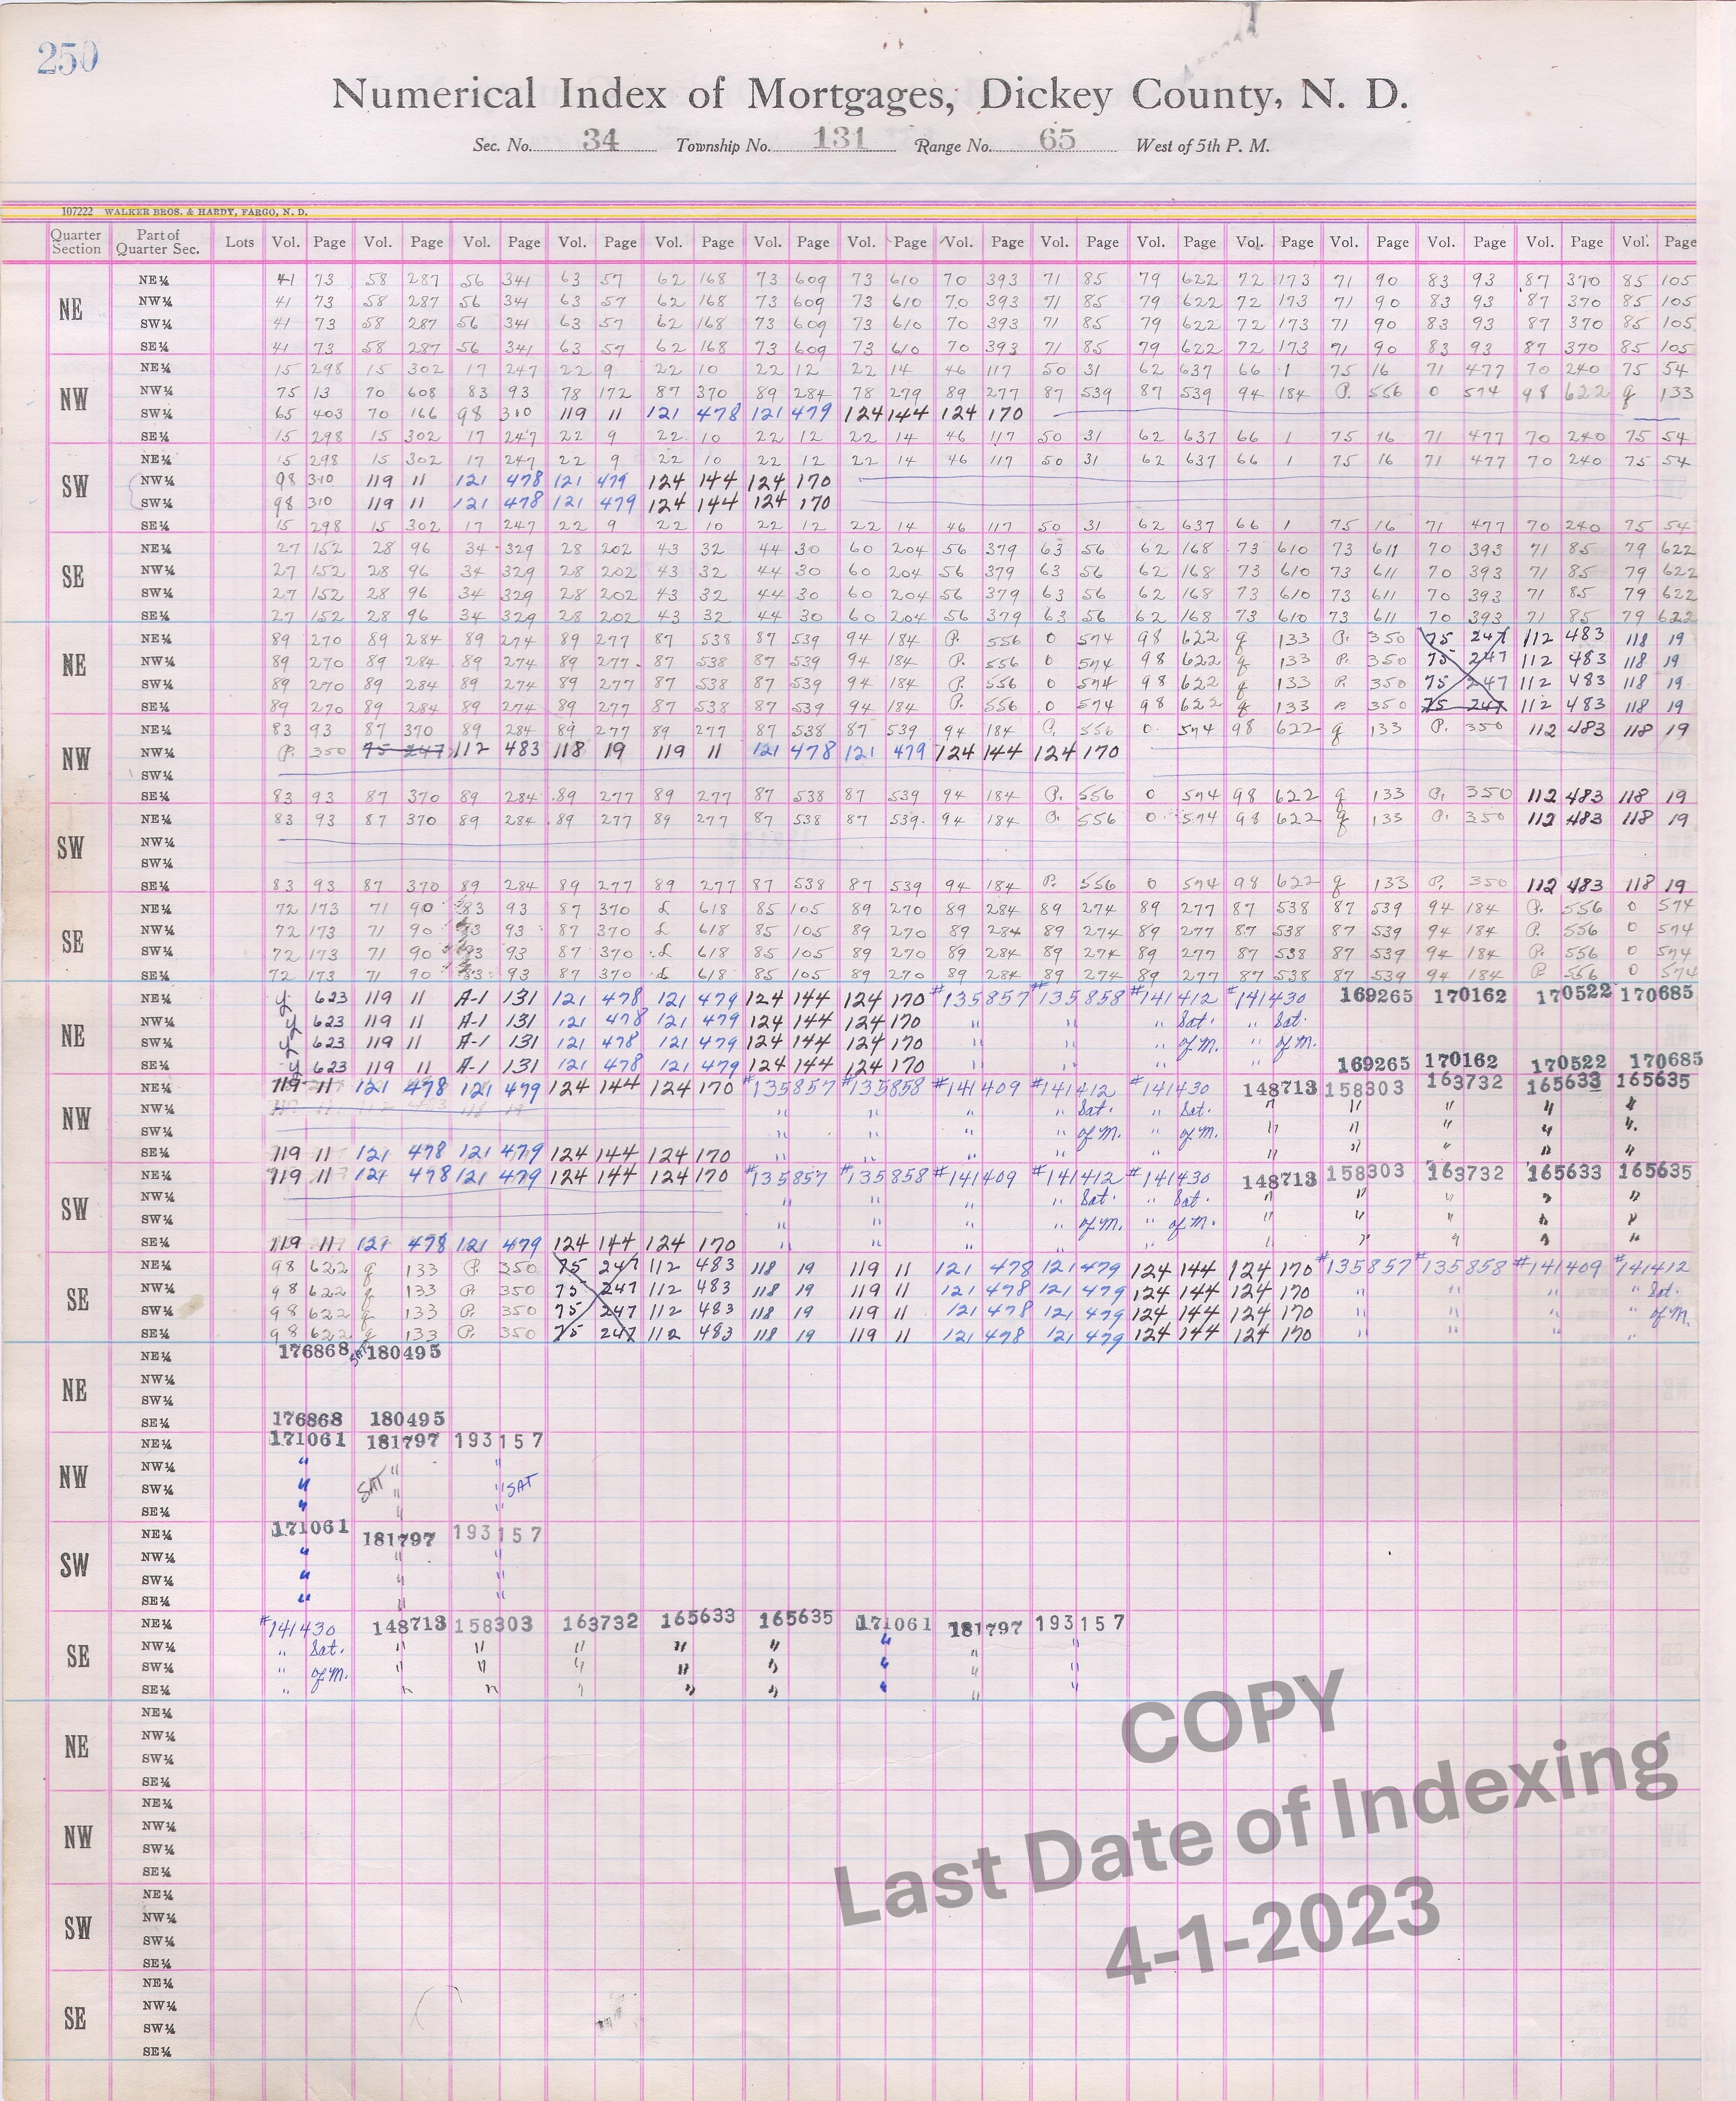 250
Numerical Index of Mortgages, Dickey County, N. D.
Sec. No. 34 Township No. 131 Range No. 65 West of 5th P. M.
107222 WALKER BROS. & HARDY, FARGO, N. D.
Quarter Section Part of Quarter Sec. Lots Vol. Page Vol. Page Vol. Page Vol. Page Vol. Page Vol. Page Vol. Page Vol. Page Vol. Page Vol. Page Vol. Page Vol. Page Vol. Page Vol. Page Vol. Page
NE
NE¼ 41 73 58 287 56 341 63 57 62 168 73 609 73 610 70 393 71 85 79 622 72 173 71 90 83 93 87 370 85 105
NW¼ 41 73 58 287 56 341 63 57 62 168 73 609 73 610 70 393 71 85 79 622 72 173 71 90 83 93 87 370 85 105
SW¼ 41 73 58 287 56 341 63 57 62 168 73 609 73 610 70 393 71 85 79 622 72 173 71 90 83 93 87 370 85 105
SE¼ 41 73 58 287 56 341 63 57 62 168 73 609 73 610 70 393 71 85 79 622 72 173 71 90 83 93 87 370 85 105
NW
NE¼ 15 298 15 302 17 247 22 9 22 10 22 12 22 14 46 117 50 31 62 637 66 1 75 16 71 477 70 240 75 54
NW¼ 75 13 70 608 83 93 78 172 87 370 89 284 78 279 89 277 87 539 87 539 94 184 P. 556 0 574 98 622 g 133
SW¼ 65 403 70 166 98 310 119 11 121 478 121 479 124 144 124 170
SE¼ 15 298 15 302 17 247 22 9 22 10 22 12 22 14 46 117 50 31 62 637 66 1 75 16 71 477 70 240 75 54
SW
NE¼ 15 298 15 302 17 247 22 9 22 10 22 12 22 14 46 117 50 31 62 637 66 1 75 16 71 477 70 240 75 54
NW¼ 98 310 119 11 121 478 121 479 124 144 124 170
SW¼ 98 310 119 11 121 478 121 479 124 144 124 170
SE¼ 15 298 15 302 17 247 22 9 22 10 22 12 22 14 46 117 50 31 62 637 66 1 75 16 71 477 70 240 75 54
SE
NE¼ 27 152 28 96 34 329 28 202 43 32 44 30 60 204 56 379 63 56 62 168 73 610 73 611 70 393 71 85 79 622
NW¼ 27 152 28 96 34 329 28 202 43 32 44 30 60 204 56 379 63 56 62 168 73 610 73 611 70 393 71 85 79 622
SW¼ 27 152 28 96 34 329 28 202 43 32 44 30 60 204 56 379 63 56 62 168 73 610 73 611 70 393 71 85 79 622
SE¼ 27 152 28 96 34 329 28 202 43 32 44 30 60 204 56 379 63 56 62 168 73 610 73 611 70 393 71 85 79 622
NE
NE¼ 89 270 89 284 89 274 89 277 87 538 87 539 94 184 P. 556 0 574 98 622 g 133 P. 350 75 247 112 483 118 19
NW¼ 89 270 89 284 89 274 89 277 87 538 87 539 94 184 P. 556 0 574 98 622 g 133 P. 350 75 247 112 483 118 19
SW¼ 89 270 89 284 89 274 89 277 87 538 87 539 94 184 P. 556 0 574 98 622 g 133 P. 350 75 247 112 483 118 19
SE¼ 89 270 89 284 89 274 89 277 87 538 87 539 94 184 P. 556 0 574 98 622 g 133 P. 350 75 247 112 483 118 19
NW
NE¼ 83 93 87 370 89 284 89 277 89 277 87 538 87 539 94 184 P. 556 0 574 98 622 g 133 P. 350 112 483 118 19
NW¼ P. 350 75 247 112 483 118 19 119 11 121 478 121 479 124 144 124 170
SW¼
SE¼ 83 93 87 370 89 284 89 277 89 277 87 538 87 539 94 184 P. 556 0 574 98 622 g 133 P. 350 112 483 118 19
SW
NE¼ 83 93 87 370 89 284 89 277 89 277 87 538 87 539 94 184 P. 556 0 574 98 622 g 133 P. 350 112 483 118 19
NW¼
SW¼
SE¼ 83 93 87 370 89 284 89 277 89 277 87 538 87 539 94 184 P. 556 0 574 98 622 g 133 P. 350 112 483 118 19
SE
NE¼ 72 173 71 90 83 93 87 370 £ 618 85 105 89 270 89 284 89 274 89 277 87 538 87 539 94 184 P. 556 0 574
NW¼ 72 173 71 90 83 93 87 370 £ 618 85 105 89 270 89 284 89 274 89 277 87 538 87 539 94 184 P. 556 0 574
SW¼ 72 173 71 90 83 93 87 370 £ 618 85 105 89 270 89 284 89 274 89 277 87 538 87 539 94 184 P. 556 0 574
SE¼ 72 173 71 90 83 93 87 370 £ 618 85 105 89 270 89 284 89 274 89 277 87 538 87 539 94 184 P 556 0 574
NE
NE¼ y 623 119 11 A-1 131 121 478 121 479 124 144 124 170 #135857 #135858 #141412 #141430 169265 170162 170522 170685
NW¼ y 623 119 11 A-1 131 121 478 121 479 124 144 124 170 " " " Sat. " Sat.
SW¼ y 623 119 11 A-1 131 121 478 121 479 124 144 124 170 " " " of M. " of M.
SE¼ y 623 119 11 A-1 131 121 478 121 479 124 144 124 170 " " " " 169265 170162 170522 170685
NW
NE¼ 119 11 121 478 121 479 124 144 124 170 #135857 #135858 #141409 #141412 #141430 148713 158303 163732 165633 165635
NW¼ " " " " Sat. " Sat. " " " " "
SW¼ " " " " of M. " of M. " " " " "
SE¼ 119 11 121 478 121 479 124 144 124 170 " " " " " " " " " "
SW
NE¼ 119 11 121 478 121 479 124 144 124 170 #135857 #135858 #141409 #141412 #141430 148713 158303 163732 165633 165635
NW¼ " " " " Sat. " Sat. " " " " "
SW¼ " " " " of M. " of M. " " " " "
SE¼ 119 11 121 478 121 479 124 144 124 170 " " " " " " " " " "
SE
NE¼ 98 622 g 133 P. 350 75 247 112 483 118 19 119 11 121 478 121 479 124 144 124 170 #135857 #135858 #141409 #141412
NW¼ 98 622 g 133 P. 350 75 247 112 483 118 19 119 11 121 478 121 479 124 144 124 170 " " " " Sat.
SW¼ 98 622 g 133 P. 350 75 247 112 483 118 19 119 11 121 478 121 479 124 144 124 170 " " " " of M.
SE¼ 98 622 g 133 P. 350 75 247 112 483 118 19 119 11 121 478 121 479 124 144 124 170 " " " "
NE
NE¼ 176868 SAT 180495
NW¼
SW¼
SE¼ 176868 180495
NW
NE¼ 171061 181797 193157
NW¼ " " "
SW¼ " SAT " " SAT
SE¼ " " "
SW
NE¼ 171061 181797 193157
NW¼ " " "
SW¼ " " "
SE¼ " " "
SE
NE¼ #141430 148713 158303 163732 165633 165635 171061 181797 193157
NW¼ " Sat. " " " " " " " "
SW¼ " of M. " " " " " " " "
SE¼ " " " " " " " " "
NE
NE¼
NW¼
SW¼
SE¼
NW
NE¼
NW¼
SW¼
SE¼
SW
NE¼
NW¼
SW¼
SE¼
SE
NE¼
NW¼
SW¼
SE¼
COPY
Last Date of Indexing
4-1-2023